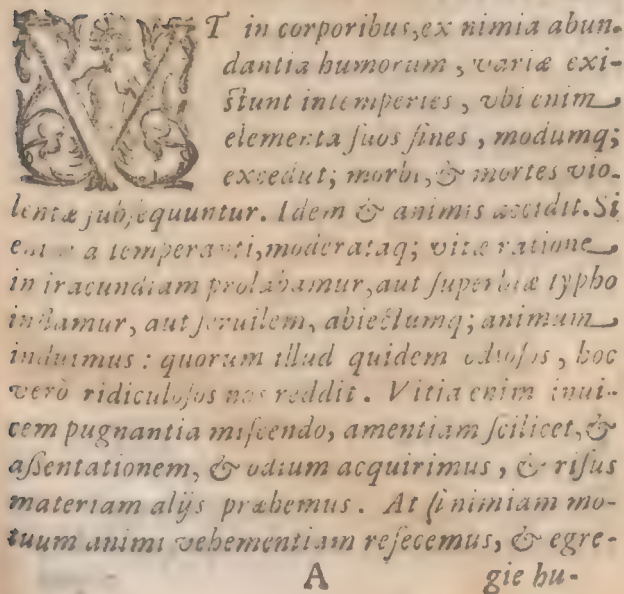 VT in corporibus, ex nimia abun-
dantia humorum, variæ exi-
stunt intemperies, vbi enim
elementa suos fines, modumq;
excedũt; morbi, & mortes vio-
lentæ subsequuntur. Idem & animis accidit. Si
enim a temperanti, moderataq; vitæ ratione
in iracundiam prolabamur, aut superbiæ typho
inflamur, aut seruilem, abiectumq; animum
induimus: quorum illud quidem odiosos, hoc
verò ridiculosos nos reddit. Vitia enim inui-
cem pugnantia miscendo, amentiam scilicet, &
assentationem, & odium acquirimus, & risus
materiam alijs præbemus. At si nimiam mo-
tuum animi vehementiam resecemus, & egre-
A gie hu-